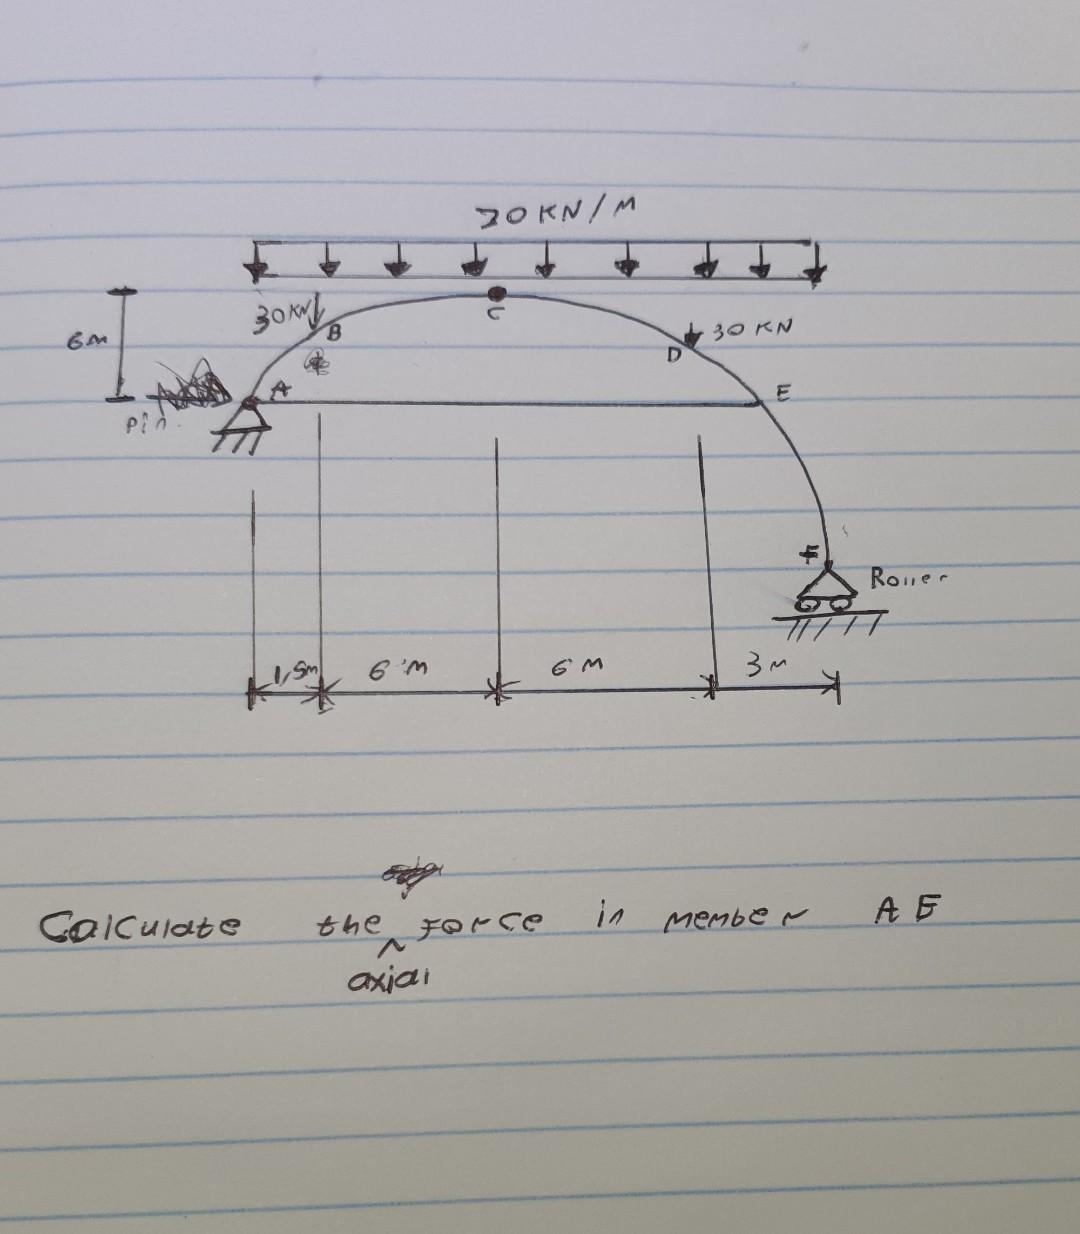 20 KN/M
30 KN
B
C
30 KN
D
6m
A
E
Pin.
F
Roller
1,5m
6 m
6 m
3 m
Calculate the force in member AE
axial